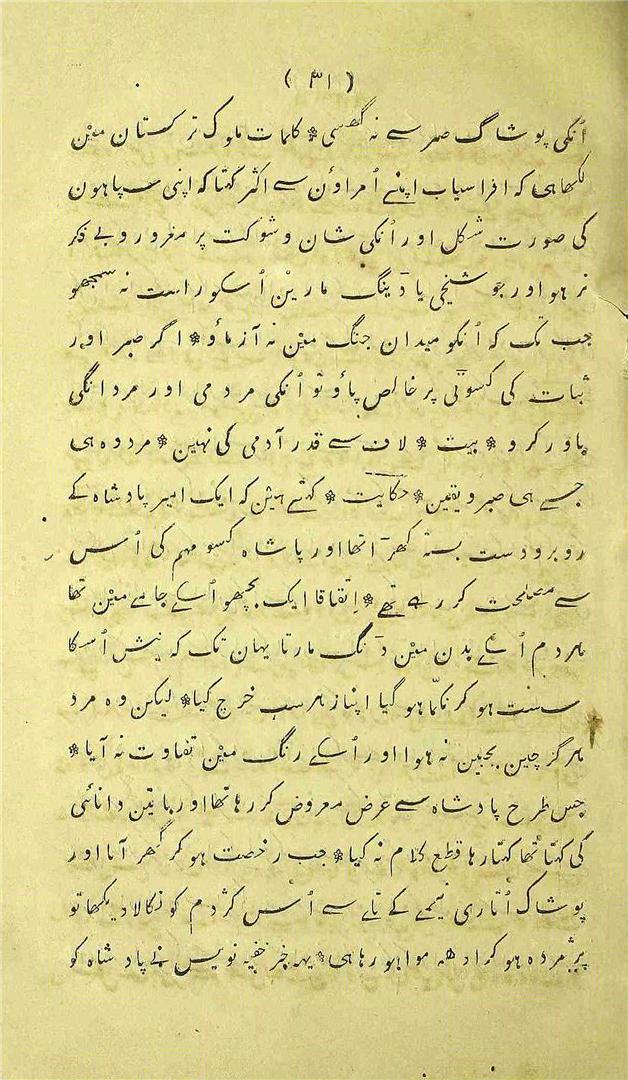 ( ۳۱ )
اُنکی پوشاگ صبر سے نہ گھسی * کلمات ملوک ترکستان مین
لکھا ہی کہ افراسیاب اپنے اُمراؤن سے اکثر کہتا کہ اپنی سپاہون
کی صورت شکل اور اُنکی شان و شوکت پر مغرور و بے فکر
نرہو اور جو شیخی یا ڈینگ مارین اُسکو راست نہ سمجھو
جب تک کہ اُنکو میدان جنگ مین نہ آزماؤ * اگر صبر اور
ثبات کی کسوٹی پر خالص پاؤ تو اُنکی مردمی اور مردانگی
باور کرو * بیت * لاف سے قدر آدمی کی نہین * مرد وہ ہی
جسے ہی صبر و یقین * حکایت * کہتے ہین کہ ایک امیر پادشاہ کے
روبرو دست بستہ کھڑا تھا اور پاشاہ کسو مہم کی اُس
سے مصلحت کر رہے تھے * اِتفاقا ایک بچھو اُسکے جامے مین تھا
ہر دم اُسکے بدن مین ڈنگ مارتا یہان تک کہ نیش اُسکا
سست ہو کر نکما ہو گیا اپنا زہر سب خرچ کیا * لیکن وہ مرد
ہرگز چین بجبین نہ ہوا اور اُسکے رنگ مین تفاوت نہ آیا *
جس طرح پادشاہ سے عرض معروض کر رہا تھا اور باتین دانائی
کی کہتا تھا کہتا رہا قطع کلام نہ کیا * جب رخصت ہو کر گھر آیا اور
پوشاک اُتاری نیمے کے تلے سے اُس کژدم کو نکالا دیکھا تو
پژمردہ ہو کر ادھہ موا ہو رہا ہی * یہہ خبر خفیہ نویس نے پادشاہ کو